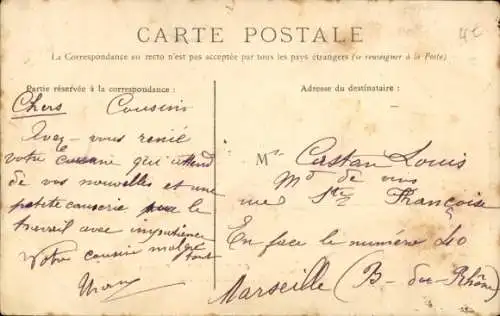 CARTE POSTALE
La Correspondance au recto n'est pas acceptée par tous les pays étrangers (se renseigner à la Poste)
Partie réservée à la correspondance :
Adresse du destinataire :
Chers Cousins
Avez-vous renié
votre cousine qui attend
de vos nouvelles et une
petite causerie le
travail avec impatience
Votre cousin malgré
tout
Mr Castan Louis
Md de vins
rue Ste Françoise
En face le numéro 40
Marseille (B-du-Rhône)